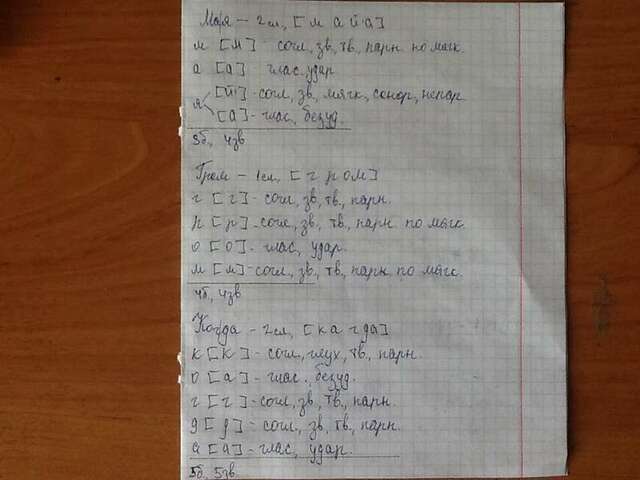 Моя – 2 сл, [м а й а]
м [м] – согл, зв, тв, парн. по мягк.
а [а] глас, удар
я [й] – согл, зв, мягк, сонор, непар.
[а] – глас, безуд.
3б, 4зв
Гром – 1 сл, [г р о м]
г [г] – согл, зв, тв, парн.
р [р] – согл, зв, тв, парн по мягк.
о [о] – глас, удар.
м [м] – согл, зв, тв, парн по мягк.
4б, 4зв
Когда – 2 сл, [к а г д а]
к [к] – согл, глух, тв, парн.
о [а] – глас, безуд.
г [г] – согл, зв, тв, парн.
д [д] – согл, зв, тв, парн.
а [а] – глас, удар.
5б, 5зв.